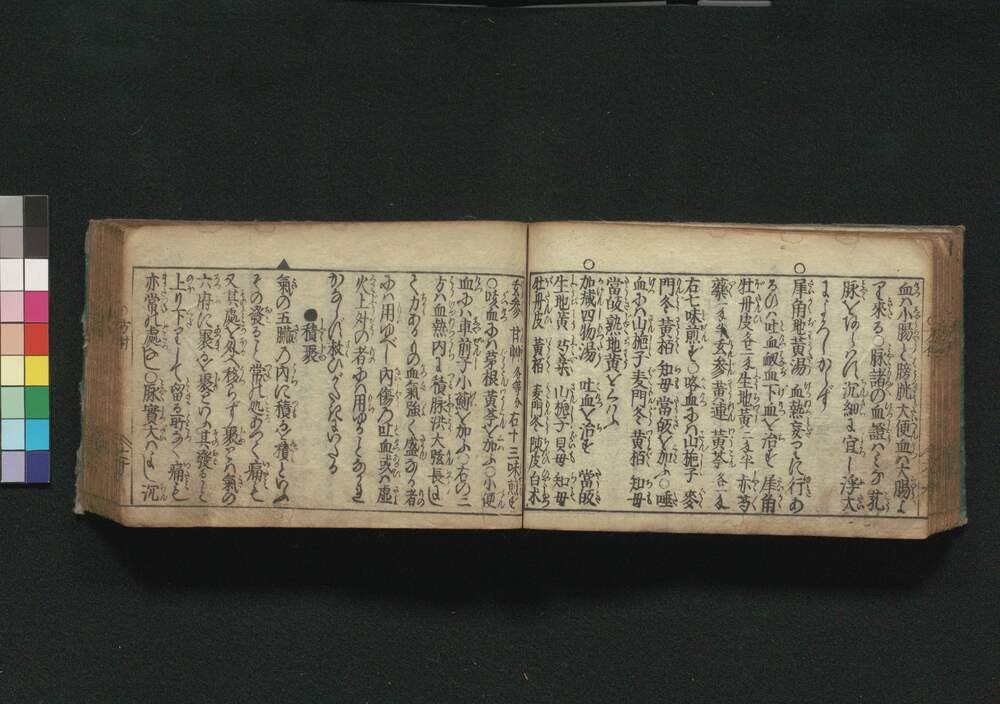 血ハ小腸と膀胱大便血ハ大腸よ
り来る〇脉諸の血證ハミな芤
脉をあらハす沉細ハ宜し浮大
ハよろしからず
〇犀角地黄湯 血熱妄りに行あ
るひハ吐血衂血下血を治す 犀角
牡丹皮 生地黄 赤芍
藥 玄参 黄連 黄芩
右七味煎じ〇咯血にハ山梔子 麥
門冬 黄柏 知母 當皈を加ふ〇唾
血にハ山梔子麦門冬 黄柏 知母
當皈 熟地黄をくハふ
〇加减四物湯 吐血を治す 當皈
生地黄 芍藥 山梔子 貝母 知母
牡丹皮 黄柏 麦門冬 陳皮 白朮
玄参 甘艸 各等分 右十三味煎じ
〇咳血にハ茅根 黄芩を加ふ〇小便
血にハ車前子小薊を加ふ〇右の二
方ハ血熱内に積脉洪大弦長にし
て力ありもの血氣強く盛なる者
にハ用ゆべし内傷の吐血或ハ虚
火上升の者にハ用ゆることなかれ
かならず救ひがたきにいたる
●積聚
▲氣の五臓の内に積るを積といふ
その發ること常の処ありて痛こと
又其處を外へ移らず聚とハ氣の
六府に聚るを聚といふ其發ること
上り下りして留る所なく痛こと
亦常の處なし〇脉實大ハよし沉